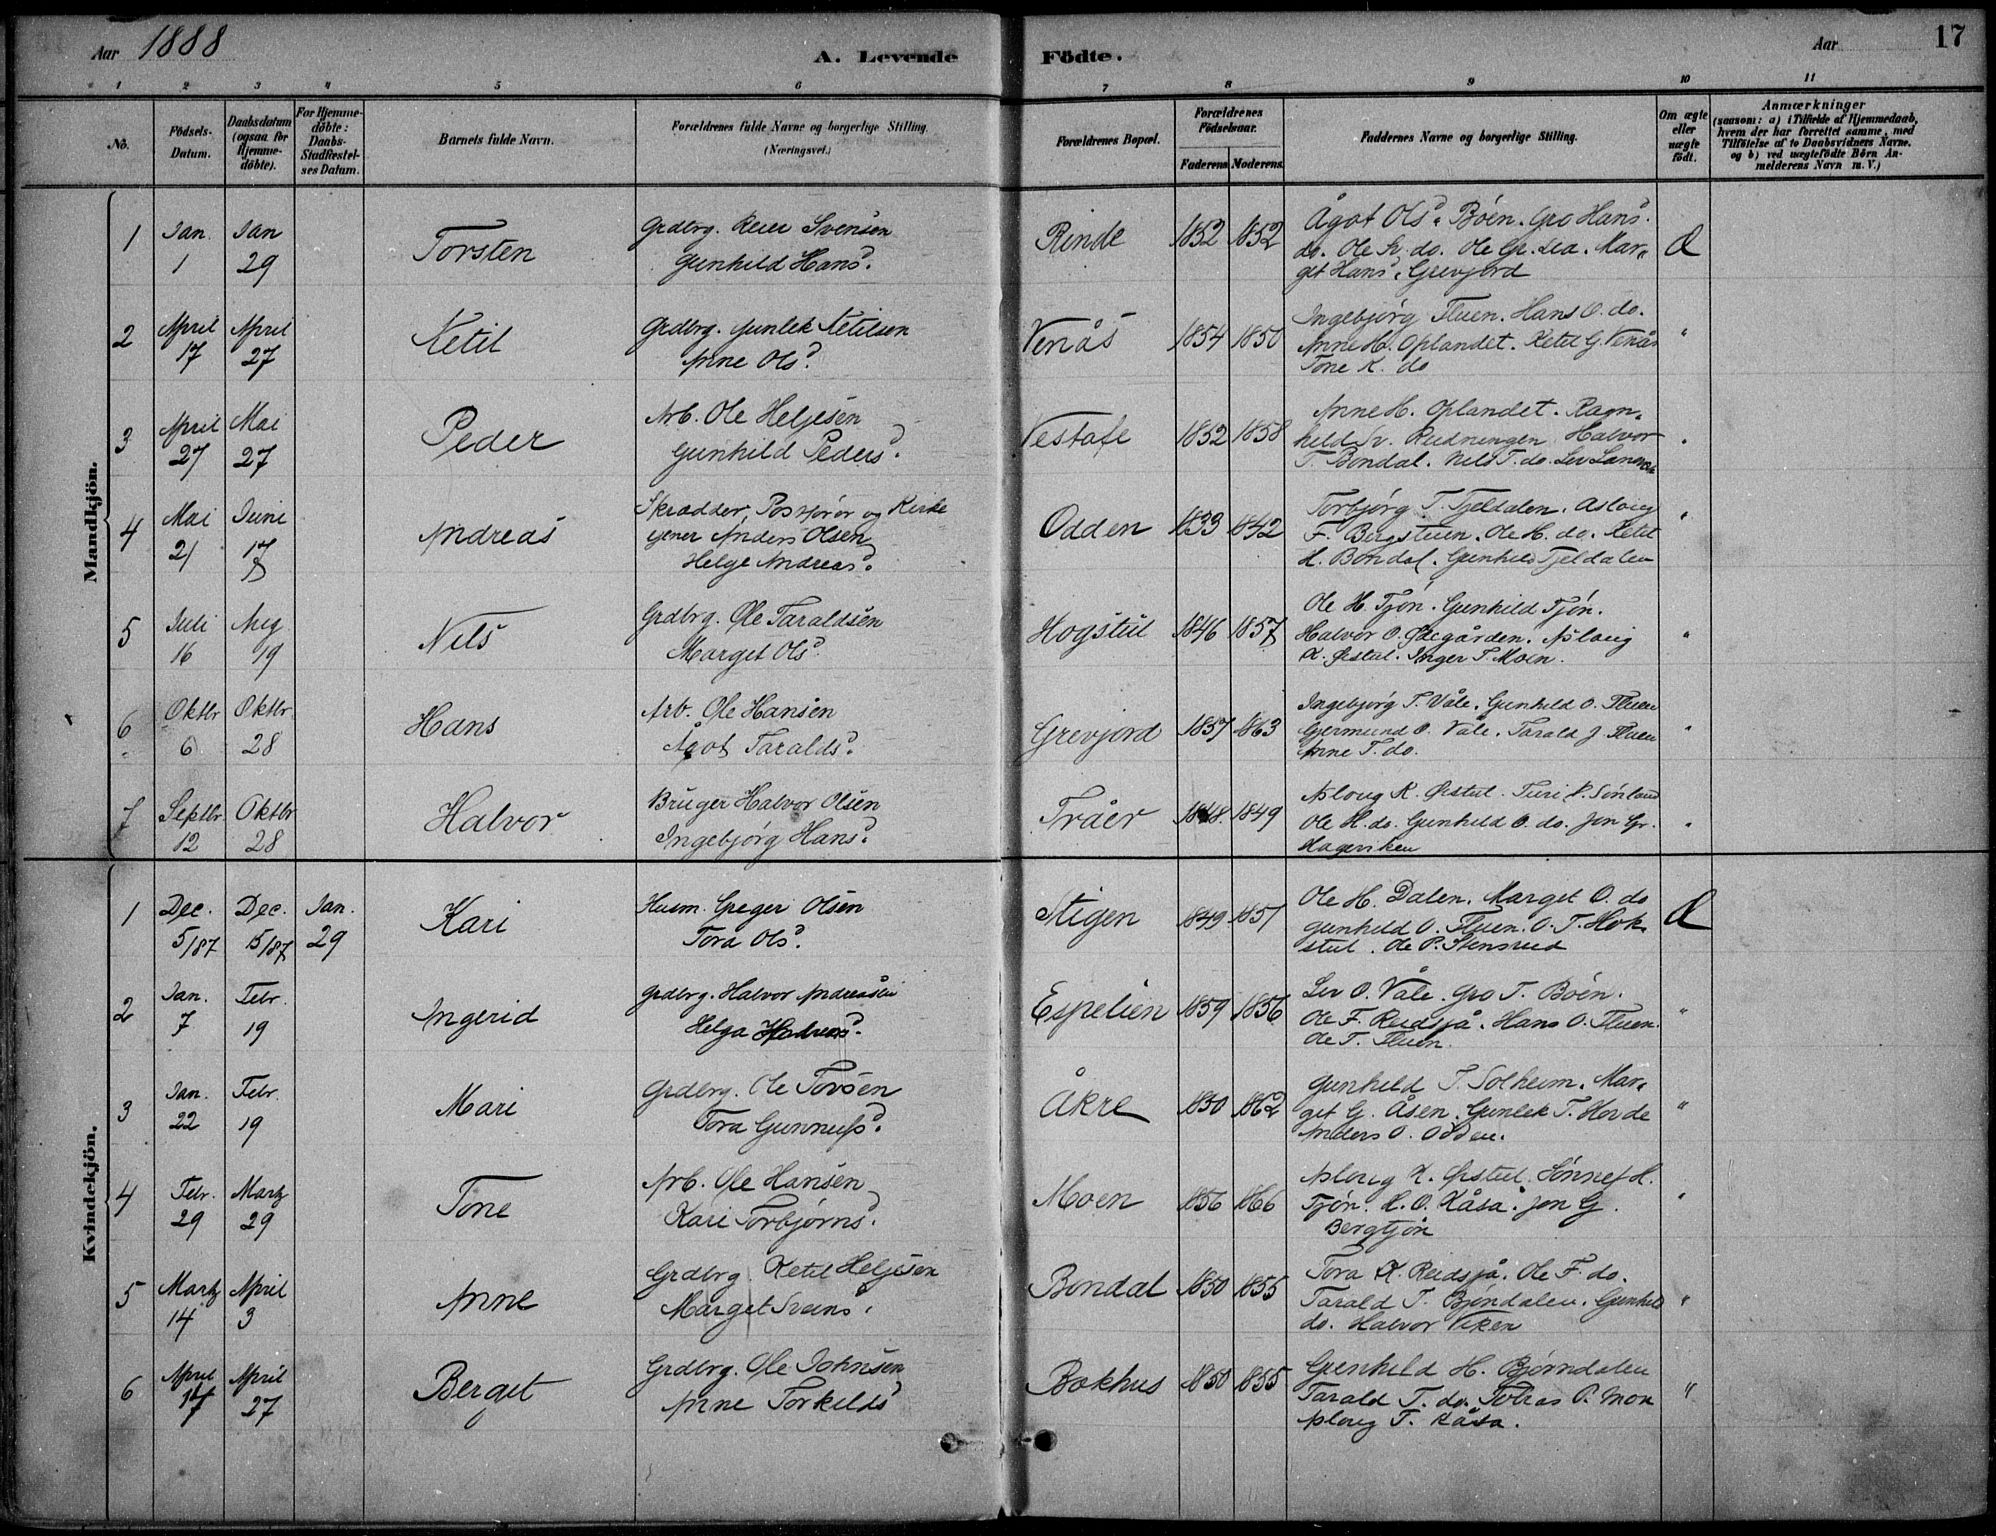 Aar 1888
A. Levende Födte.
Aar
17
1 2 3 4 5 6 7 8 9 10 11
No.
Födsels-Datum.
Daabsdatum (ogsaa for Hjemmedöbte).
For Hjemmedöbte: Daabs-Stadfæstelses Datum.
Barnets fulde Navn.
Forældrenes fulde Navne og borgerlige Stilling. (Næringsvei.)
Forældrenes Bopæl.
Forældrenes Födselsaar.
Faderens Moderens
Faddernes Navne og borgerlige Stilling.
Om ægte eller uægte födt.
Anmærkninger
(saasom: a) i Tilfælde af Hjemmedaab, hvem der har forrettet samme, med Tilföielse af to Daabsvidners Navne. og b) ved uægtefödte Börn Anmelderens Navn m. V.)
Mandkjön.
1 Jan. 1 Jan 29 Torsten Grdbrg. Reier Svensen Gunhild Hans Rinde 1852 1852 Ågot Ols. Bøen. Gro Hans. do. Ole H. do. Ole Gr. Marget Hans. Grevjord
2 April 17 April 27 Ketil Grdbrg. Gunlek Ketilsen Anne Ols Venås 1854 1850 Ingebjørg Fluen. Hans O. do. Anne H. Oplandet. Ketil G. Venås Tone K. do "
3 April 27 Mai 27 Peder Arb. Ole Heljesen Gunhild Peders. Vestafe 1852 1858 Anne H. Oplandet. Ragnhild Sv. Rudningen. Halvor T. Bondal. Nils T. do. "
4 Mai 21 Juni 17 Andreas Skrædder, Postfører og Kirketjener Anders Olsen Helge Andreas. Odden 1833 1842 Torbjørg T. Tjeldalen. Asloug F. Bergstuen. Ole H. do. Ketil H. Bondal. Gunhild Tjeldalen "
5 Juli 16 Aug 19 Nils Grdbrg. Ole Taraldsen Marget Ols. Hogstul 1846 1857 Ole H. Tjøn. Gunhild Tjøn. Halvor O. Ødegården. Asloug K. Ørstul. Inger T. Moen. "
6 Oktbr 6 Oktbr 28 Hans Arb. Ole Hansen Ågot Taralds. Grevjord 1857 1863 Ingebjørg T. Våle. Gunhild O. Fluen Gjermund O. Våle. Tarald J. Fluen Anne T. do. "
7 Septbr 12 Oktbr 28 Halvor Bruger Halvor Olsen Ingebjørg Hans. Tråer 1848 1849 Asloug K. Ørstul. Turi P. Sønland Ole H. do. Gunhild O. do. Jon Gr. Hageviken "
Kvindekjön.
1 Dec. 5/87 Dec. 15/87 Jan. 29 Kari Husm. Greger Olsen Tora Ols. Stigen 1849 1857 Ole H. Dalen. Marget O. do Gunhild O. Fluen. O. T. Hokstul. Ole P. Stensrud
2 Jan. 7 Febr. 19 Ingerid Grdbrg. Halvor Andreasen Helga Espelien 1859 1856 Liv O. Våle. Gro T. Bøen. Ole F. Rudsjå. Hans O. Fluen. Ole T. Fluen. "
3 Jan. 22 Febr. 19 Mari Grdbrg. Ole Tovsen Tora Gunnulfs. Åkre 1850 1862 Gunhild T. Solheim. Marget G. Åsen. Gunlek T. Hovde Anders O. Odden. "
4 Febr. 29 Marts 29 Tone Arb. Ole Hansen Kari Torbjørns. Moen 1856 1866 Asloug K. Ørstul. Sønnef H. Tjøn. H. O. Kåsa. Jon G. Bergtjøn "
5 Marts 14 April 3 Anne Grdbrg. Ketil Heljesen Marget Sveins. Bondal 1850 1855 Tora K. Rudsjå. Ole F. do. Tarald T. Bjøndalen. Gunhild do. Halvor Viken "
6 April 17 April 27 Berget Grdbrg. Ole Johnsen Anne Torkilds Bokhus 1850 1855 Gunhild H. Bjørndalen Tarald T. do. Tobias P. Mon Asloug T. Kåsa. "